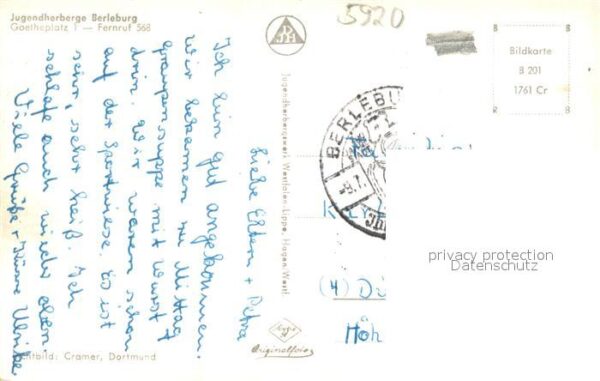 Jugendherberge Berleburg
Goetheplatz 1 — Fernruf 568
5920
Bildkarte
B 201
1761 Cr
Liebe Eltern + Petra
Ich bin gut angekommen.
Wir bekamen zu Mittag
Graupensuppe mit Wurst
drin. Wir waren schon
auf der Sportwiese. Es ist
sehr, sehr heiß. Ich
schlafe auch wieder oben.
Viele Grüße +
Ulrike
Jugendherbergswerk Westfalen-Lippe, Hagen-Westf.
BERLEBU
-9.7.
Fa
(4) Dü
Höh
privacy protection
Datenschutz
Originalfoto
Lichtbild: Cramer, Dortmund